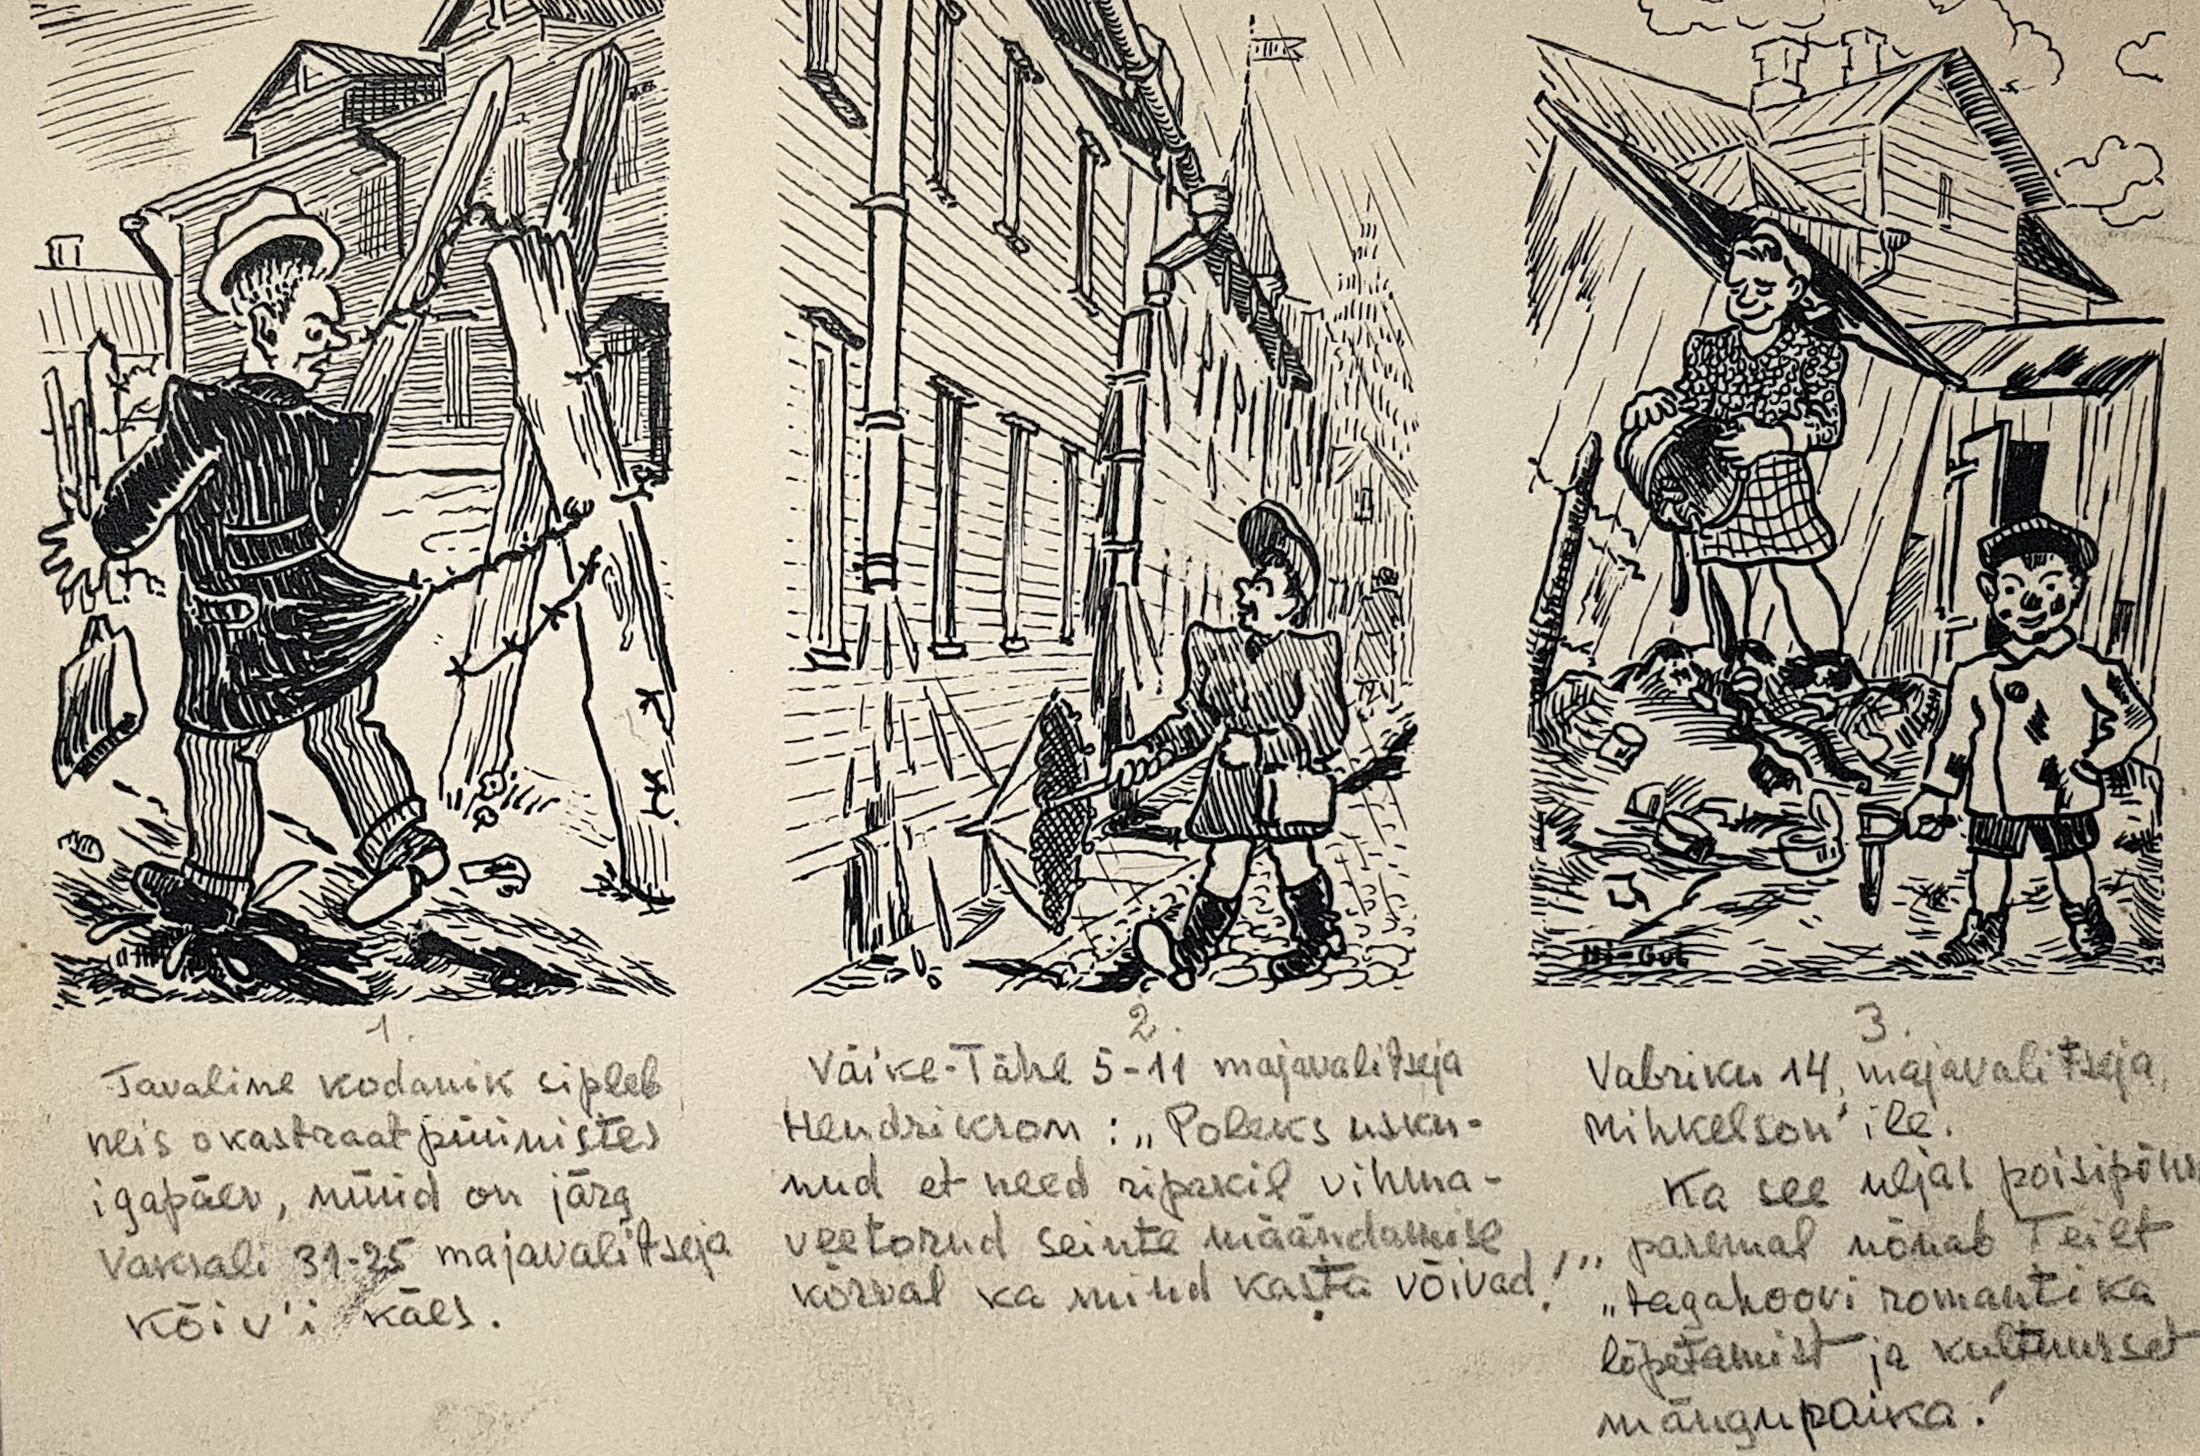 Mi-Gut
1.
Tavaline kodanik sipleb
neis okastraatpüünistes
igapäev, nüüd on järg
Vaksali 31-25 majavalitseja
Kõiv'i käes.
2.
Väike-Tähe 5-11 majavalitseja
Hendrikson : „Poleks usku-
nud et need ripakil vihma-
veetorud seinte määndamise
kõrval ka mind kasta võivad!"
3.
Vabriku 14, majavalitseja,
Mihkelson'ile.
Ka see uljas poisipõnn
paremal nõuab Teilt
„tagahoovi romantika
lõpetamist ja kultuurset
mängupaika!